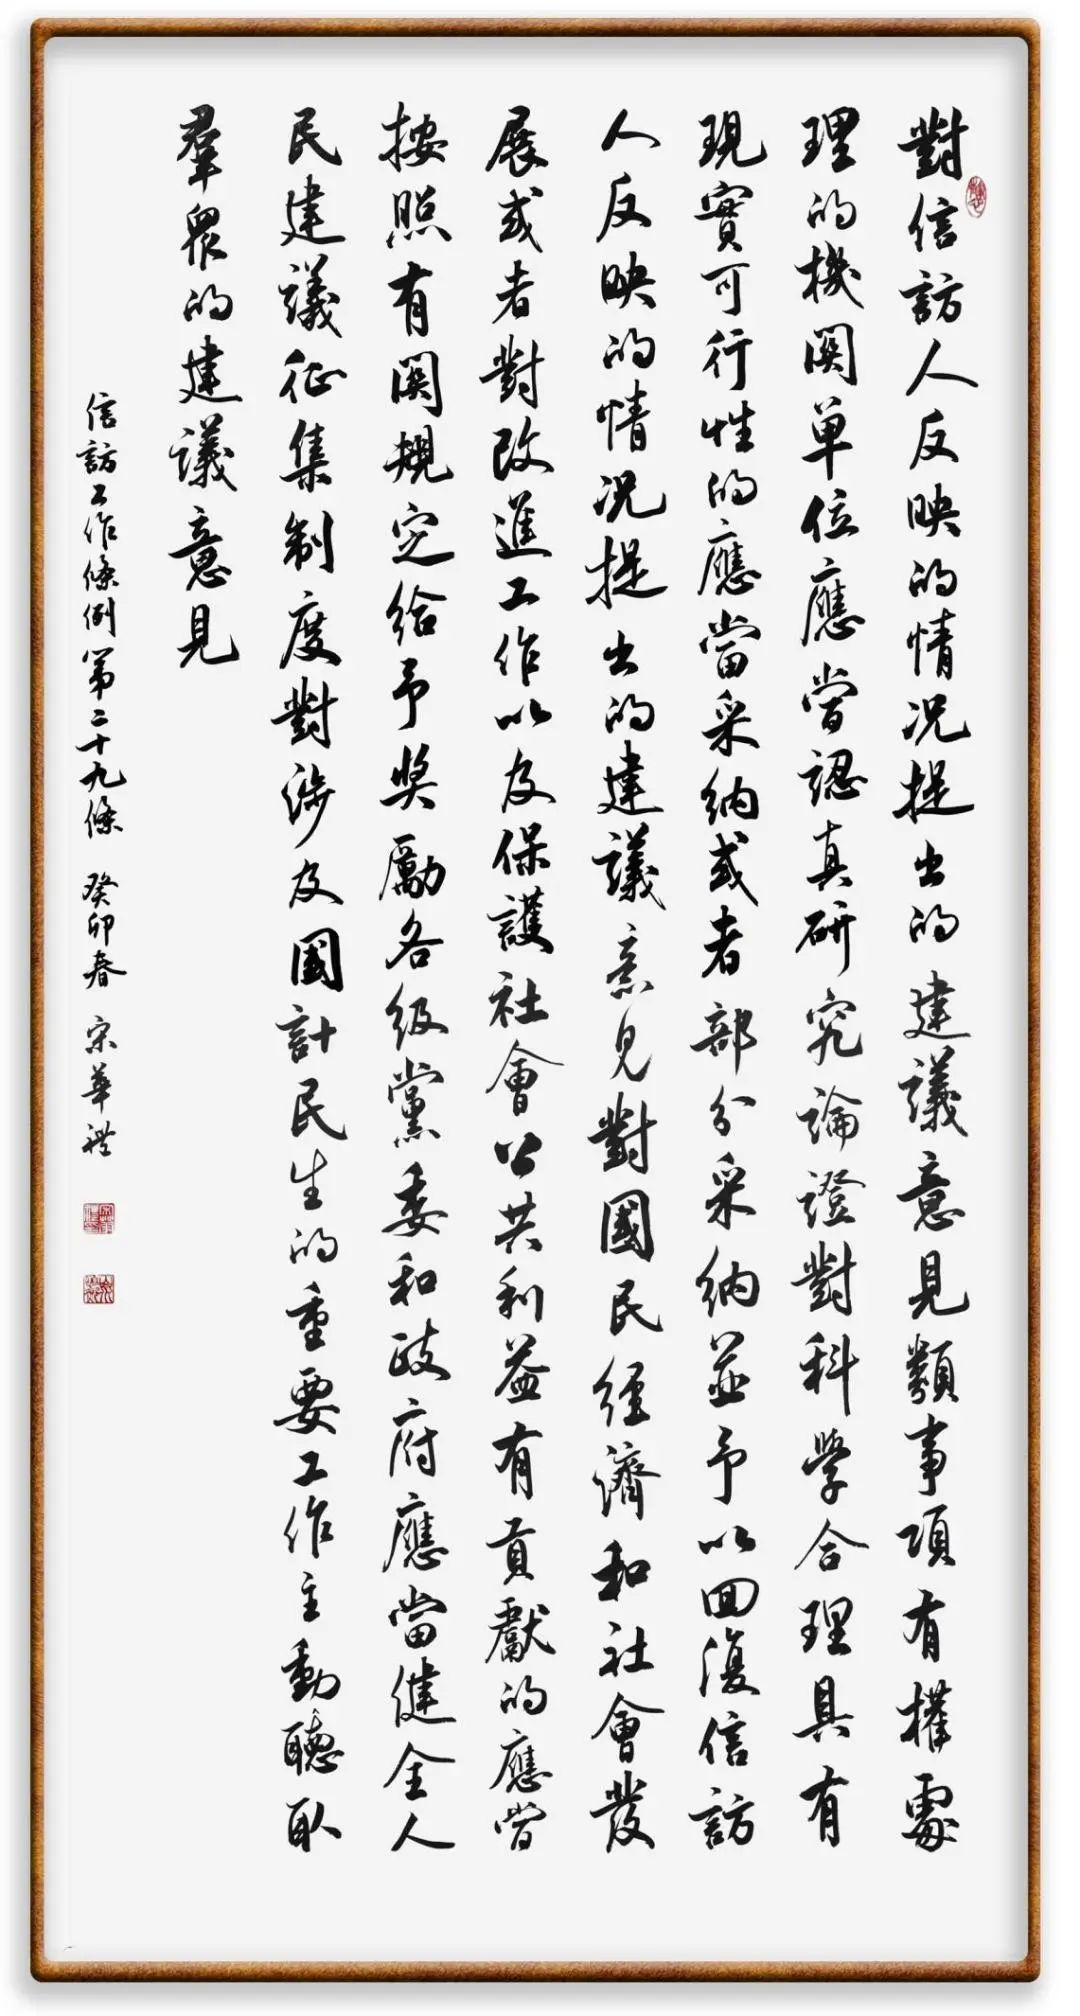 對信訪人反映的情況提出的建議意見類事項有權處
理的機關單位應當認真研究論證對科學合理具有
現實可行性的應當采納或者部分采納並予以回復信訪
人反映的情況提出的建議意見對國民經濟和社會發
展或者對改進工作以及保護社會公共利益有貢獻的應當
按照有關規定給予奬勵各級黨委和政府應當健全人
民建議征集制度對涉及國計民生的重要工作主動聽取
羣衆的建議意見
信訪工作條例第二十九條 癸卯春 宋華禮